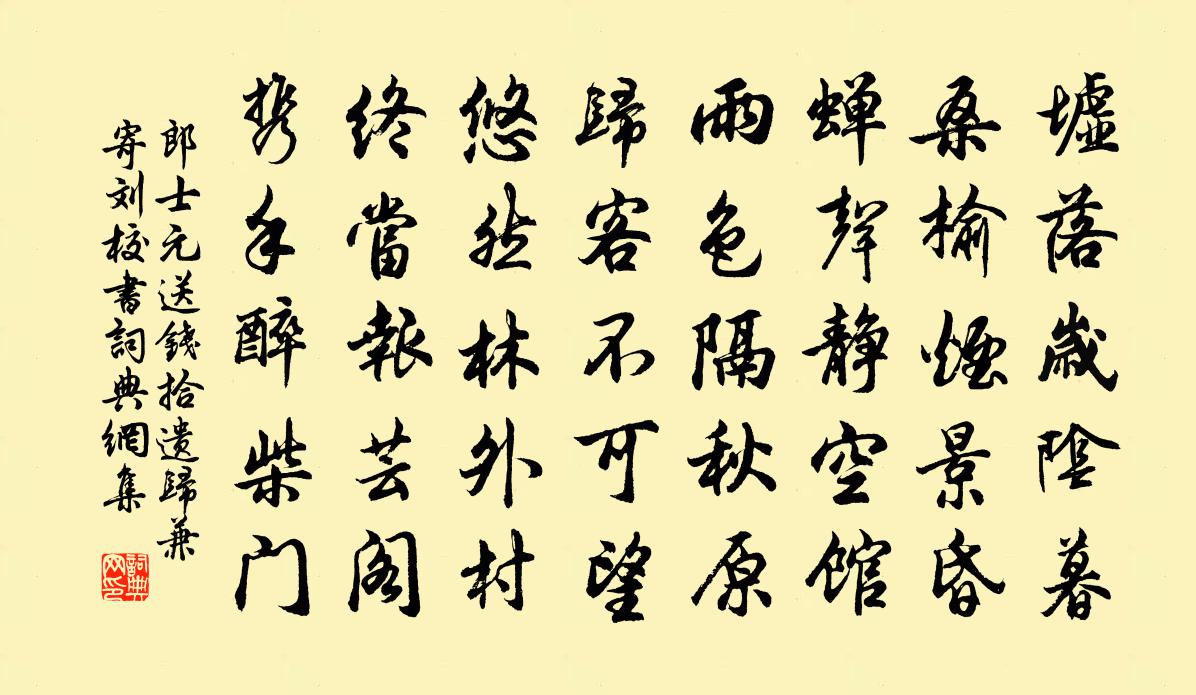 墟落歲陰暮
桑榆煙景昏
蝉聲静空館
雨色隔秋原
歸客不可望
悠然林外村
终當報芸閣
携手醉柴门
郎士元送錢拾遗歸兼
寄刘校書詞典網集
詞典
网印